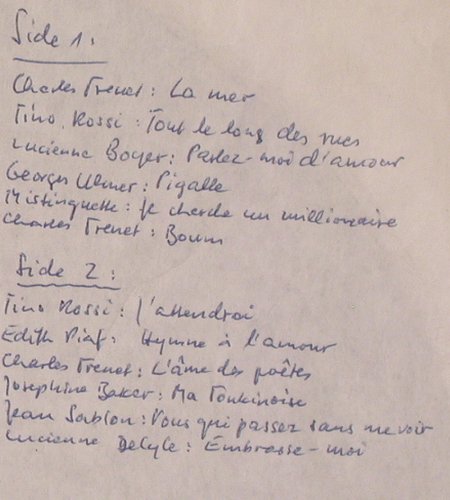 Side 1:
Charles Trenet: La mer
Tino Rossi: Tout le long des rues
Lucienne Boyer: Parlez-moi d'amour
Georges Ulmer: Pigalle
Mistinguette: Je cherche un millionaire
Charles Trenet: Boum
Side 2:
Tino Rossi: J'attendrai
Edith Piaf: Hymne à l'amour
Charles Trenet: L'âme des poètes
Josephine Baker: Ma Tonkinoise
Jean Sablon: Vous qui passez sans me voir
Lucienne Delyle: Embrasse-moi